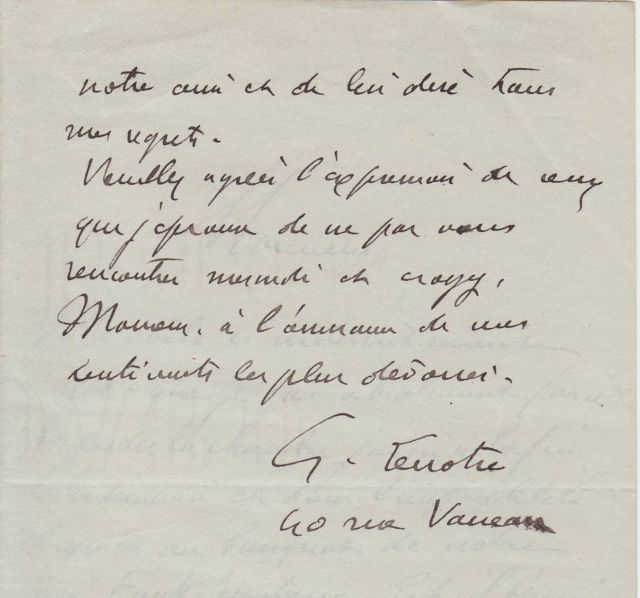 notre ami et de lui dire tous
mes regrets.
Veuillez agréer l'expression de ceux
que j'éprouve de ne pas vous
rencontrer mercredi et croyez,
Monsieur, à l'assurance de mes
sentiments les plus dévoués.
G.
40 rue Vaneau